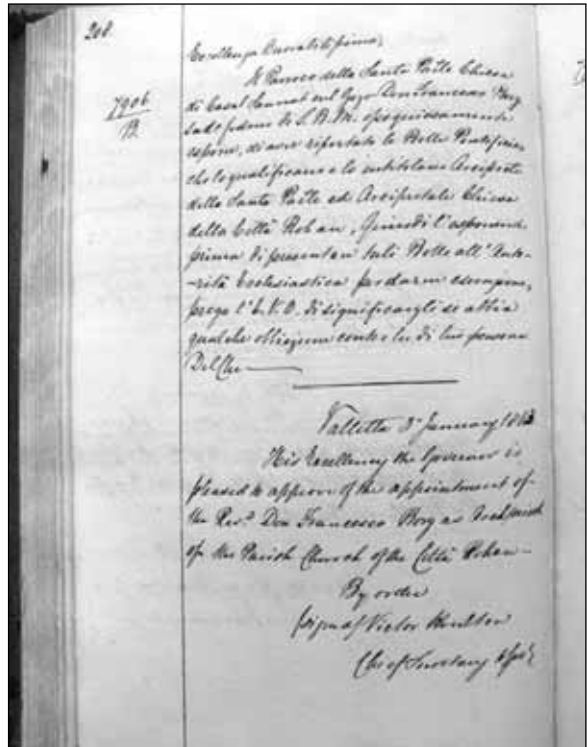 208.
7906
B
Eccellenza
Il Paroco della Santa Chiesa
di Casal sul Gozo Don Francesco Borg
di S. B. M. ossequiosamente
espone, di aver riportato le Bolle Pontificie
che lo qualificano e lo intitolano Arciprete
della ed Arcipretale Chiesa
della Città Rohan. Quindi l'esponente
prima di presentare tali Bolle all'Auto-
-rità Ecclesiastica per
prega l'E. V. O. di significargli se abbia
qualche obbiezione contro la di lui persona
Del Che
Valletta 3 January 18
His Excellency the Governor is
pleased to approve of the appointment of
the Revd. Don Francesco Borg as Archpriest
of the Parish Church of the Città Rohan -
By order
(signed) Victor Houlton
Chief Secretary to Govt